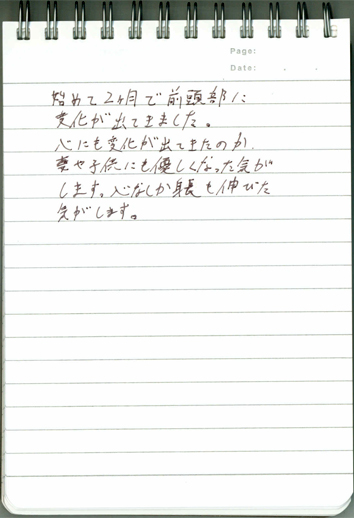 Page:
Date: . .
始めて2ヶ月で前頭部に
変化が出てきました。
心にも変化が出てきたのか、
妻や子供にも優しくなった気が
します。心なしか身長も伸びた
気がします。